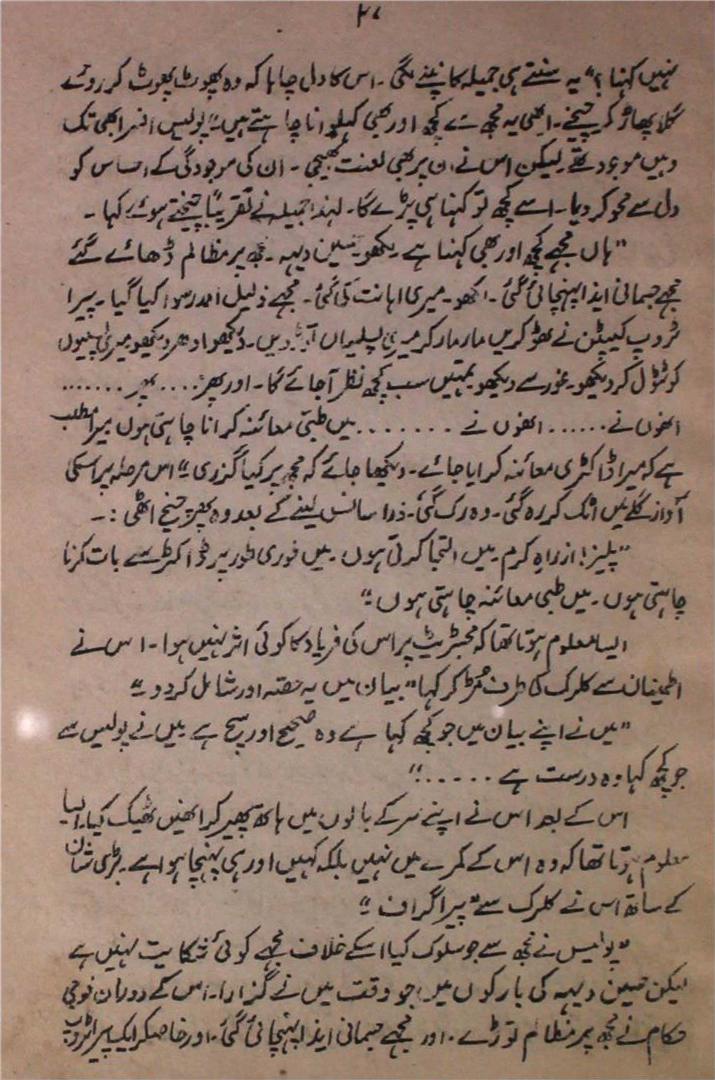 ۲۸
نہیں کہنا؟“ یہ سنتے ہی جمیلہ کانپنے لگی۔ اس کا دل چاہا کہ وہ پھوٹ پھوٹ کر روئے
گلا پھاڑ کر چیخے۔ ابھی یہ مجھ سے کچھ اور بھی کہلوانا چاہتے ہیں“ پولیس افسر ابھی تک
وہیں موجود تھے لیکن اس نے ان پر بھی لعنت بھیجی۔ ان کی موجودگی کے احساس کو
دل سے محو کر دیا۔ اسے کچھ تو کہنا ہی پڑے گا۔ لہٰذا جمیلہ نے تقریباً چیختے ہوئے کہا۔
”ہاں مجھے کچھ اور بھی کہنا ہے۔ لکھو۔ حسین دیہہ۔ مجھ پر مظالم ڈھائے گئے
مجھے جسمانی ایذا پہنچائی گئی۔ لکھو۔ میری اہانت کی گئی۔ مجھے ذلیل اور رسوا کیا گیا۔ پیرا
ٹروپ کیپٹن نے ٹھوکریں مار مار کر میری پسلیاں توڑ دیں۔ دیکھو ادھر دیکھو میری پسلیوں
کو ٹٹول کر دیکھو۔ غور سے دیکھو تمہیں سب کچھ نظر آ جائے گا۔ اور پھر.... پھر.......
انھوں نے...... انھوں نے....... میں طبی معائنہ کرانا چاہتی ہوں میرا مطلب
ہے کہ میرا ڈاکٹری معائنہ کرایا جائے۔ دیکھا جائے کہ مجھ پر کیا گزری“ اس مرحلہ پر اسکی
آواز گلے میں اٹک کر رہ گئی۔ وہ رک گئی۔ ذرا سانس لینے کے بعد وہ پھر چیخ اٹھی :۔
”پلیز! از راہِ کرم۔ میں التجا کرتی ہوں۔ میں فوری طور پر ڈاکٹر سے بات کرنا
چاہتی ہوں۔ میں طبی معائنہ چاہتی ہوں“
ایسا معلوم ہوتا تھا کہ مجسٹریٹ پر اس کی فریاد کا کوئی اثر نہیں ہوا۔ اس نے
اطمینان سے کلرک کی طرف مڑ کر کہا ”بیان میں یہ حصّہ اور شامل کر دو“
”میں نے اپنے بیان میں جو کچھ کہا ہے وہ صحیح اور سچ ہے میں نے پولیس سے
جو کچھ کہا وہ درست ہے.....“
اس کے بعد اس نے اپنے سر کے بالوں میں ہاتھ پھیر کر انھیں ٹھیک کیا۔ ایسا
معلوم ہوتا تھا کہ وہ اس کے کمرے میں نہیں بلکہ کہیں اور ہی پہنچا ہوا ہے۔ بڑی شان
کے ساتھ اس نے کلرک سے ”پیراگراف“
”پولیس نے مجھ سے جو سلوک کیا اسکے خلاف مجھے کوئی شکایت نہیں ہے
لیکن حسین دیہہ کی بارکوں میں جو وقت میں نے گزارا۔ اس کے دوران فوجی
حکام نے مجھ پر مظالم توڑے۔ اور مجھے جسمانی ایذا پہنچائی گئی۔ اور خاصکر ایک پیراٹروپ